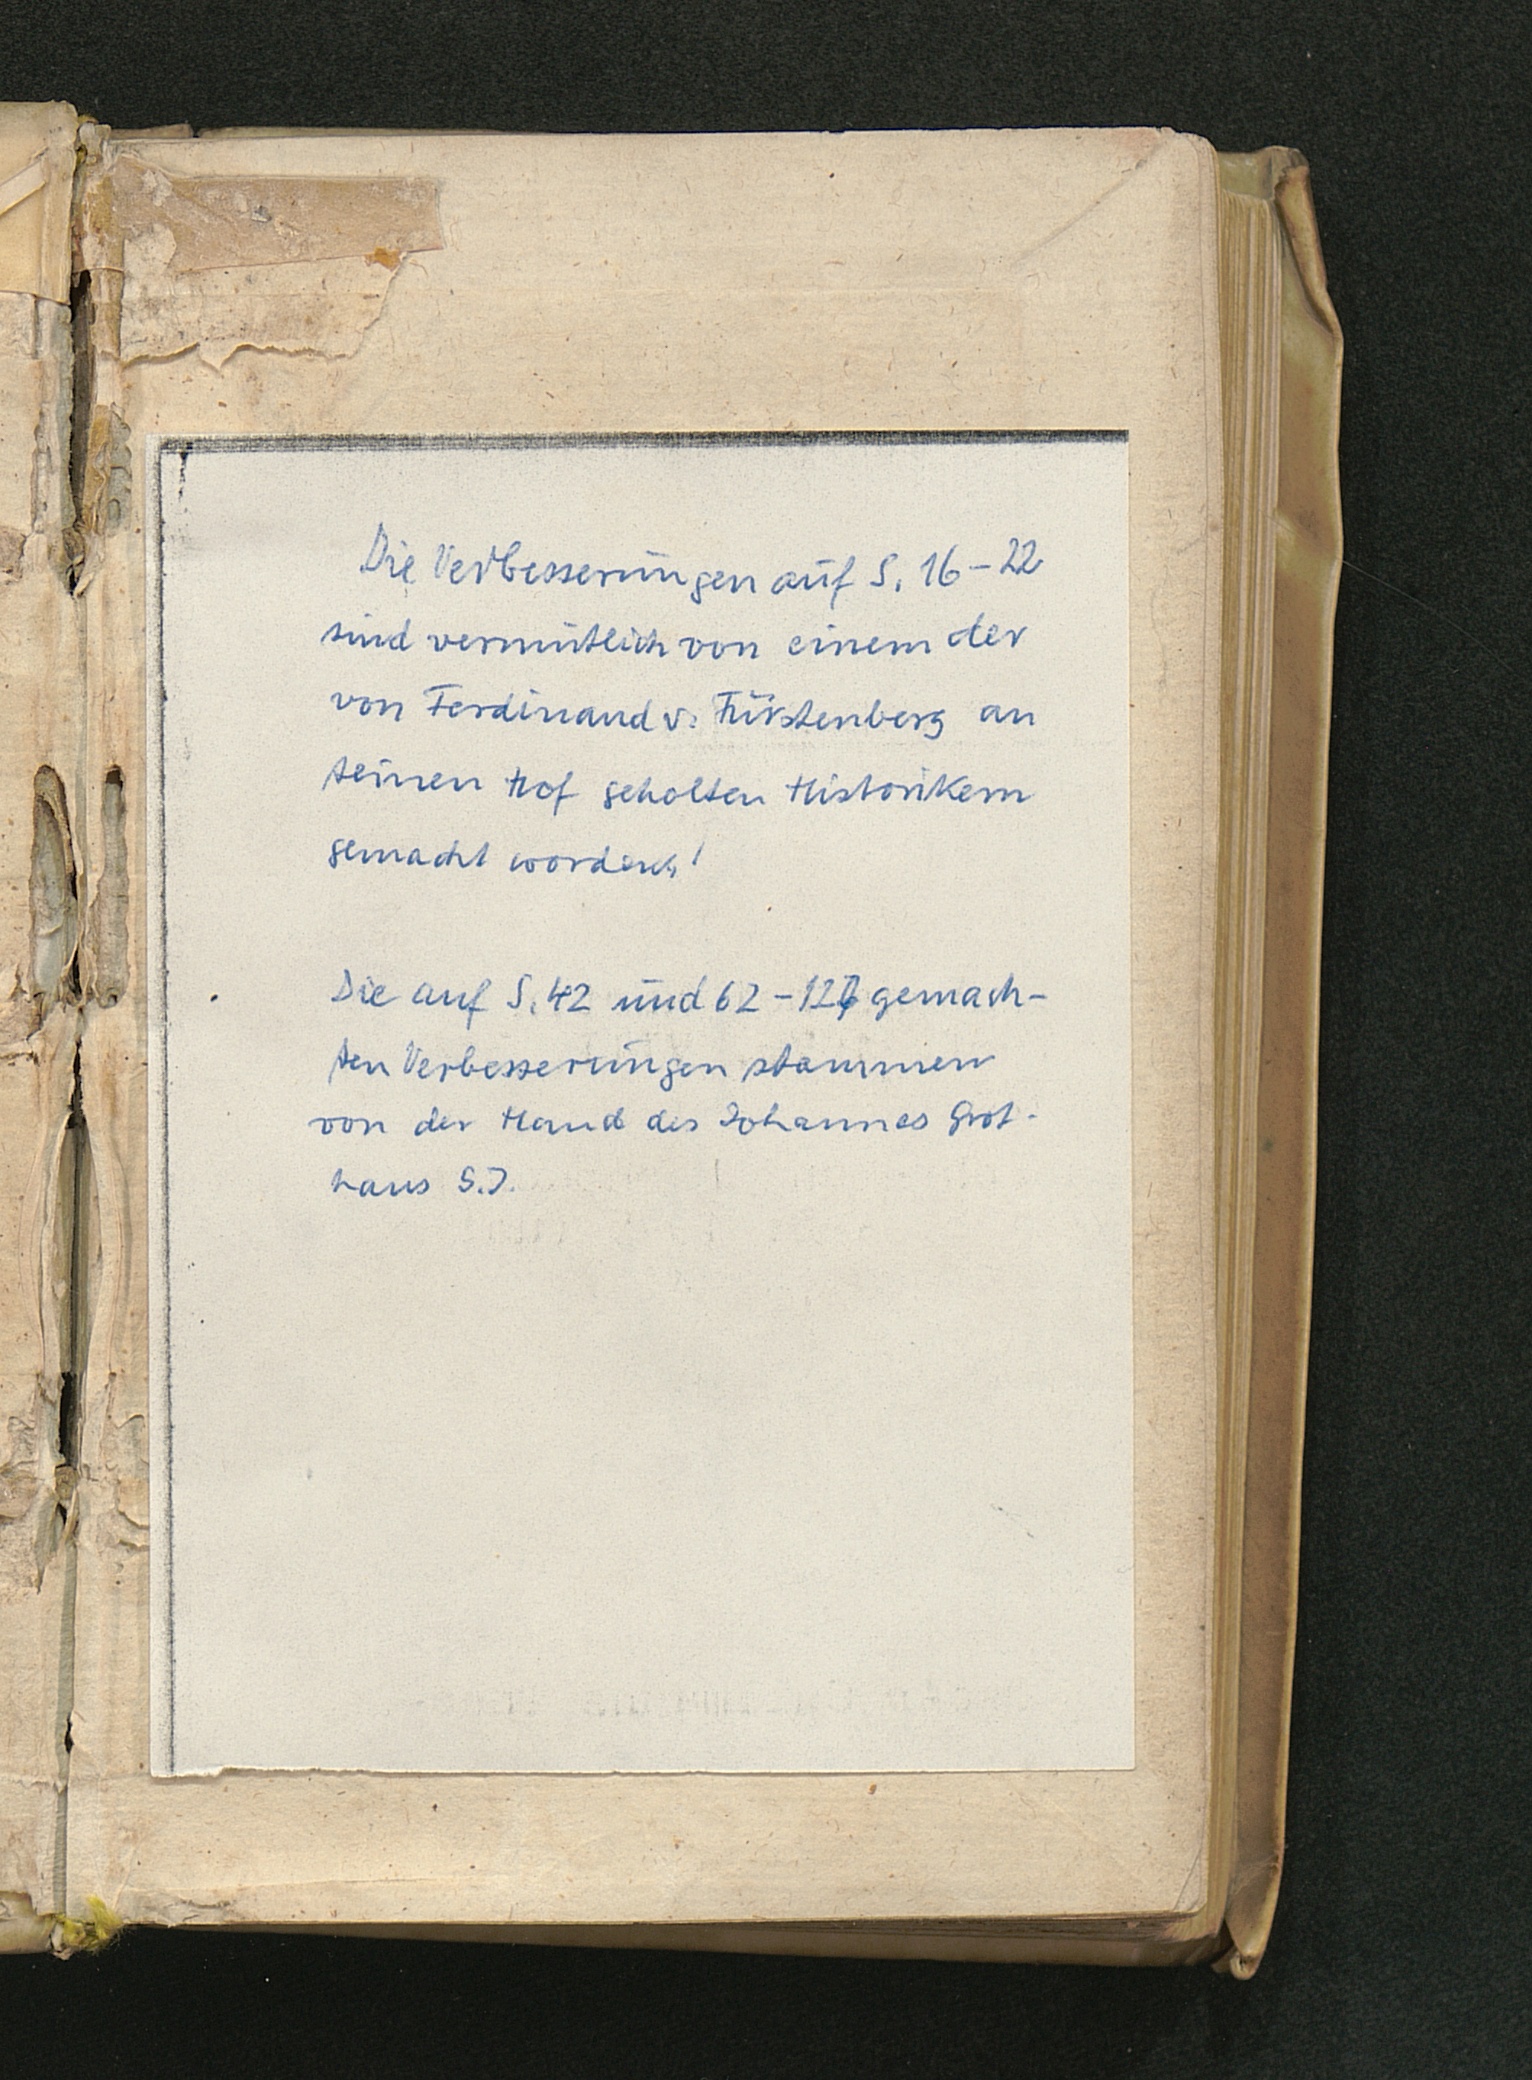 Die Verbesserungen auf S. 16-22
sind vermutlich von einem der
von Ferdinand v. Fürstenberg an
seinen Hof geholten Historikern
gemacht worden!
Die auf S. 42 und 62-127 gemach-
ten Verbesserungen stammen
von der Hand des Johannes Grot-
haus S.J.